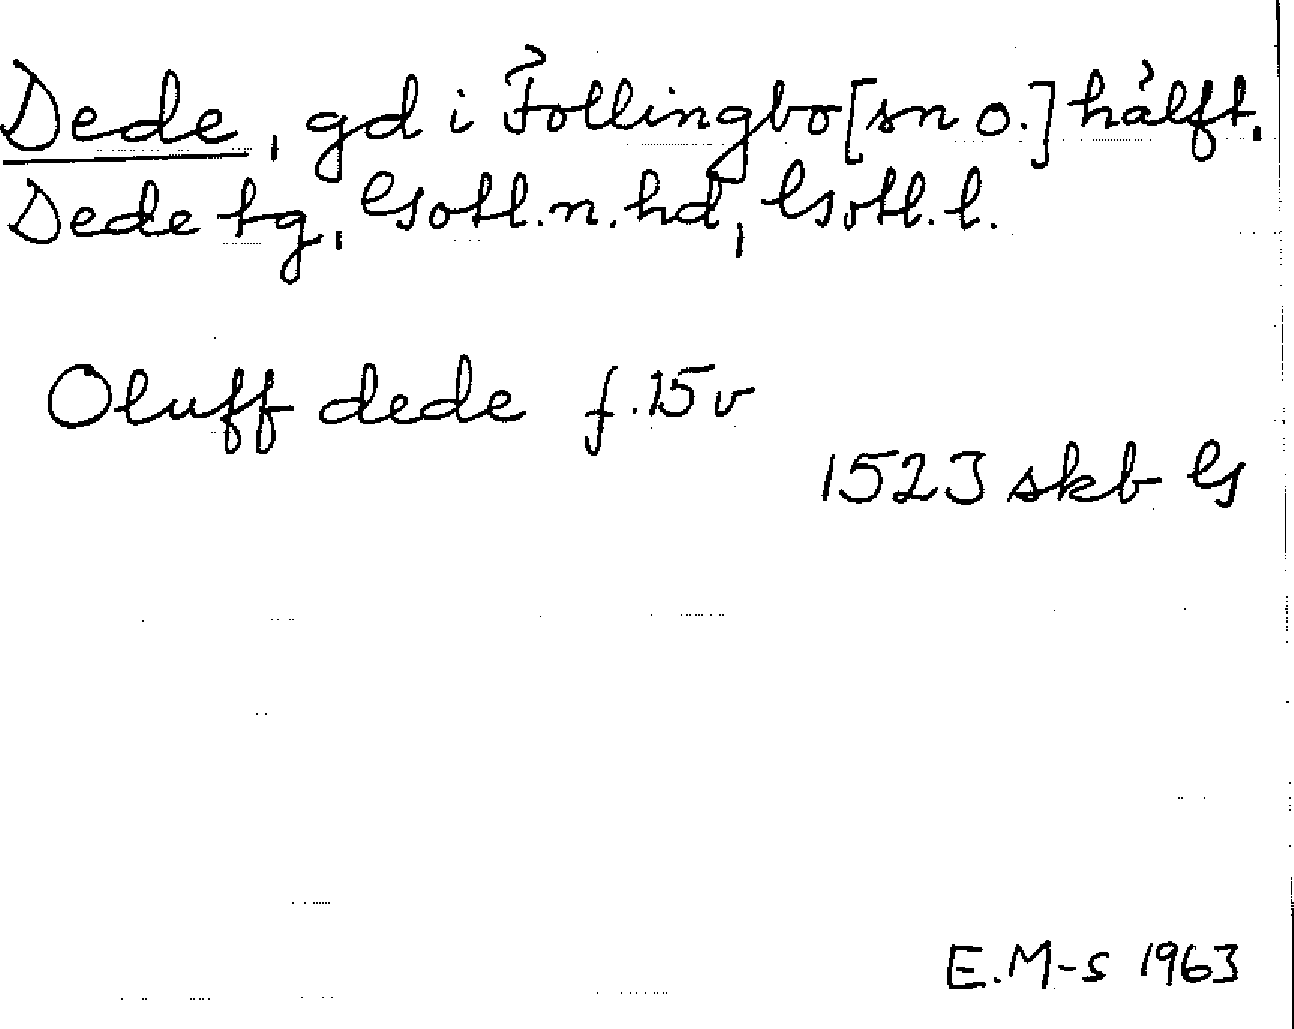 Dede, gd i Follingbo [sn o.] hälft.
Dede tg, Gotl. n. hd, Gotl. l.
Oluff dede f. 15 v
1523 skb G
E. M-s 1963